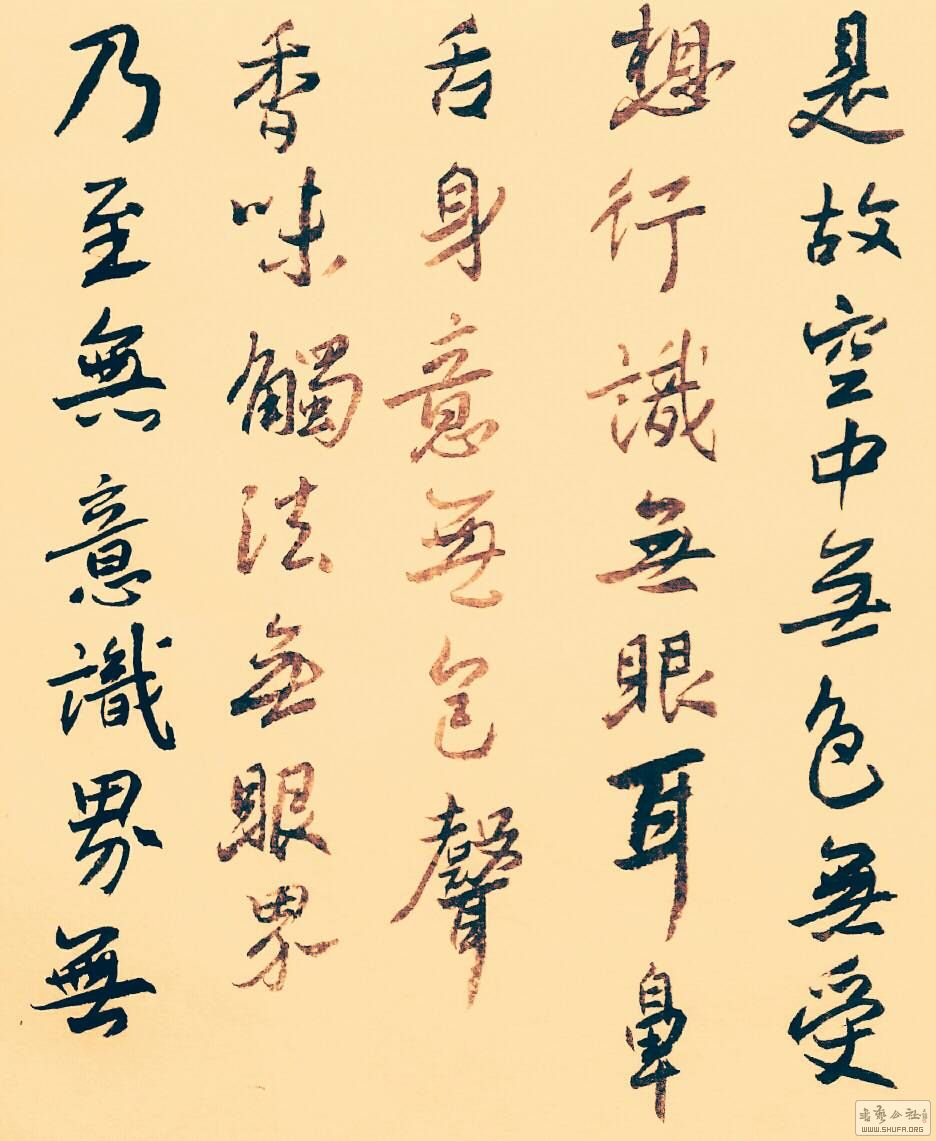 是故空中無色無受
想行識無眼耳鼻
舌身意無色聲
香味觸法無眼界
乃至無意識界無
書藝公社
WWW.SHUFA.ORG